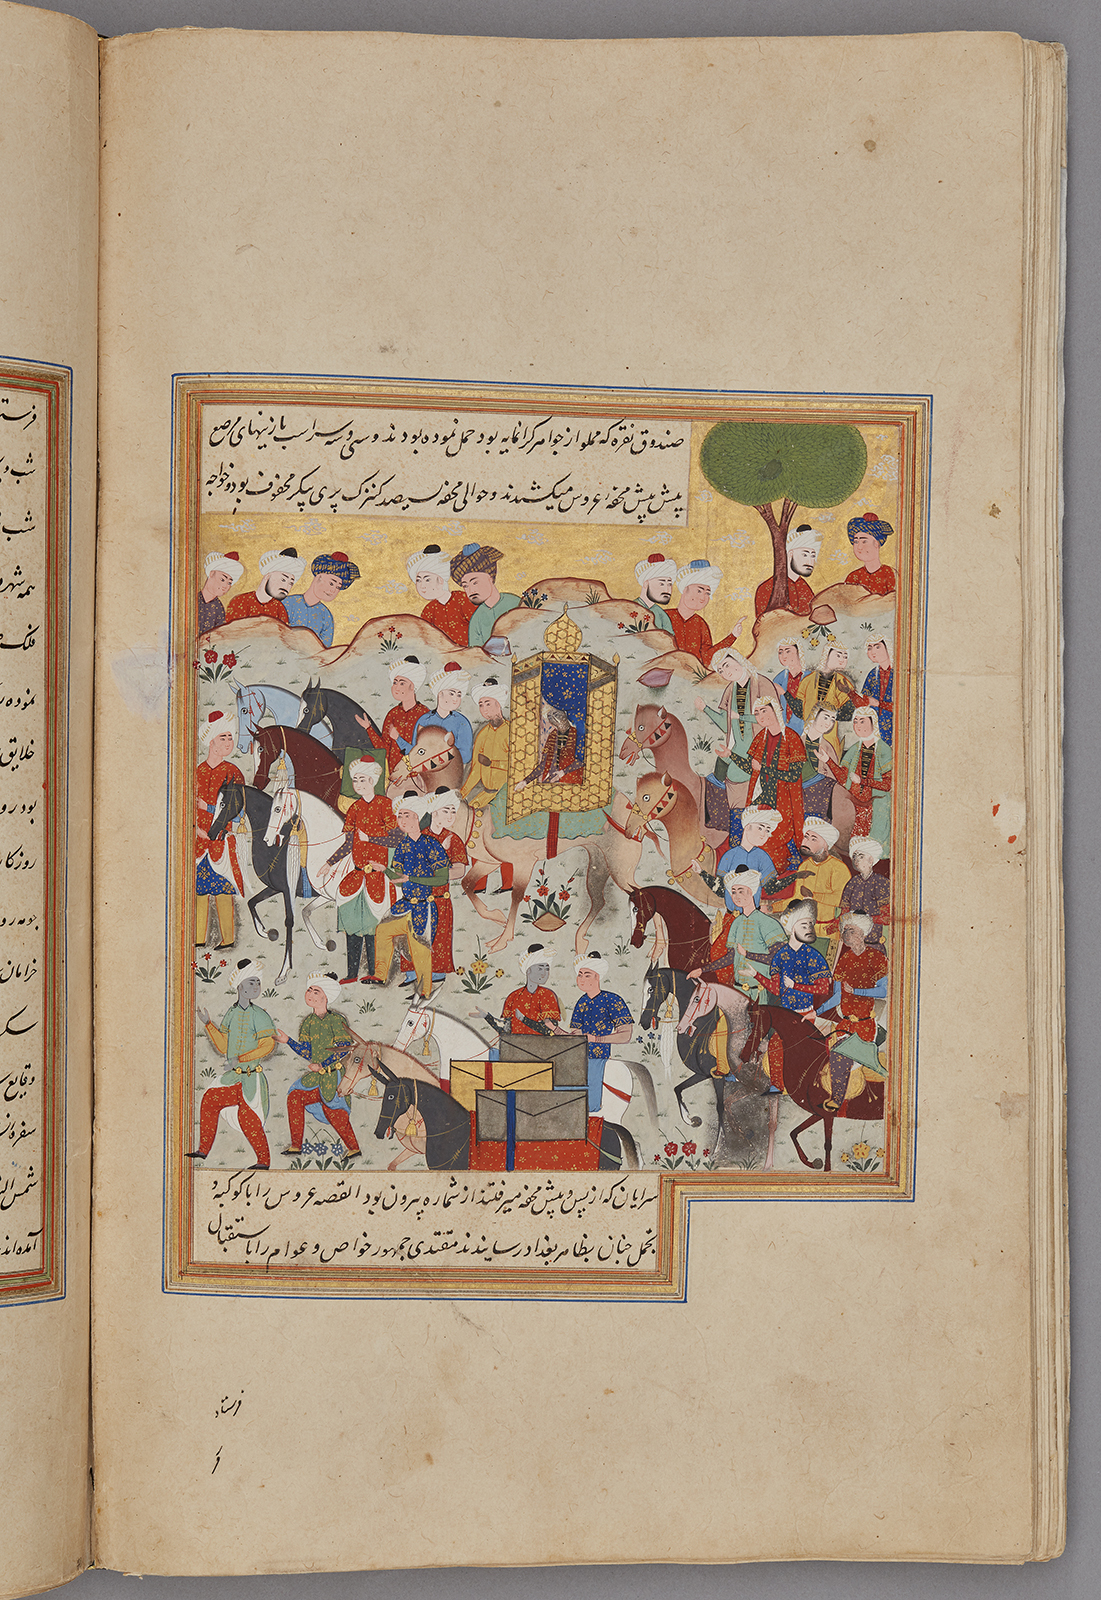 صندوق نقره که مملو از جواهر گرانمایه بود حمل نموده بودند و سی و سه سر اسب با زینهای مرصع
پیش پیش محفهٔ عروس میکشیدند و حوالی محفه سیصد کنیزک پری پیکر محفوف بود و خواجه
سرایان که از پس و پیش محفه میرفتند از شماره بیرون بود القصه عروس را با کوکبه و
تجمل چنان بظاهر بغداد رسانیدند مقتدی جمهور خواص و عوام را باستقبال
فرستاد
فرستـ
شب و
شب
همه شهر و
فلک
نموده
خلایق
بود و
روزکا
خرامان
وقایع
سفره
شمس
آمده اند